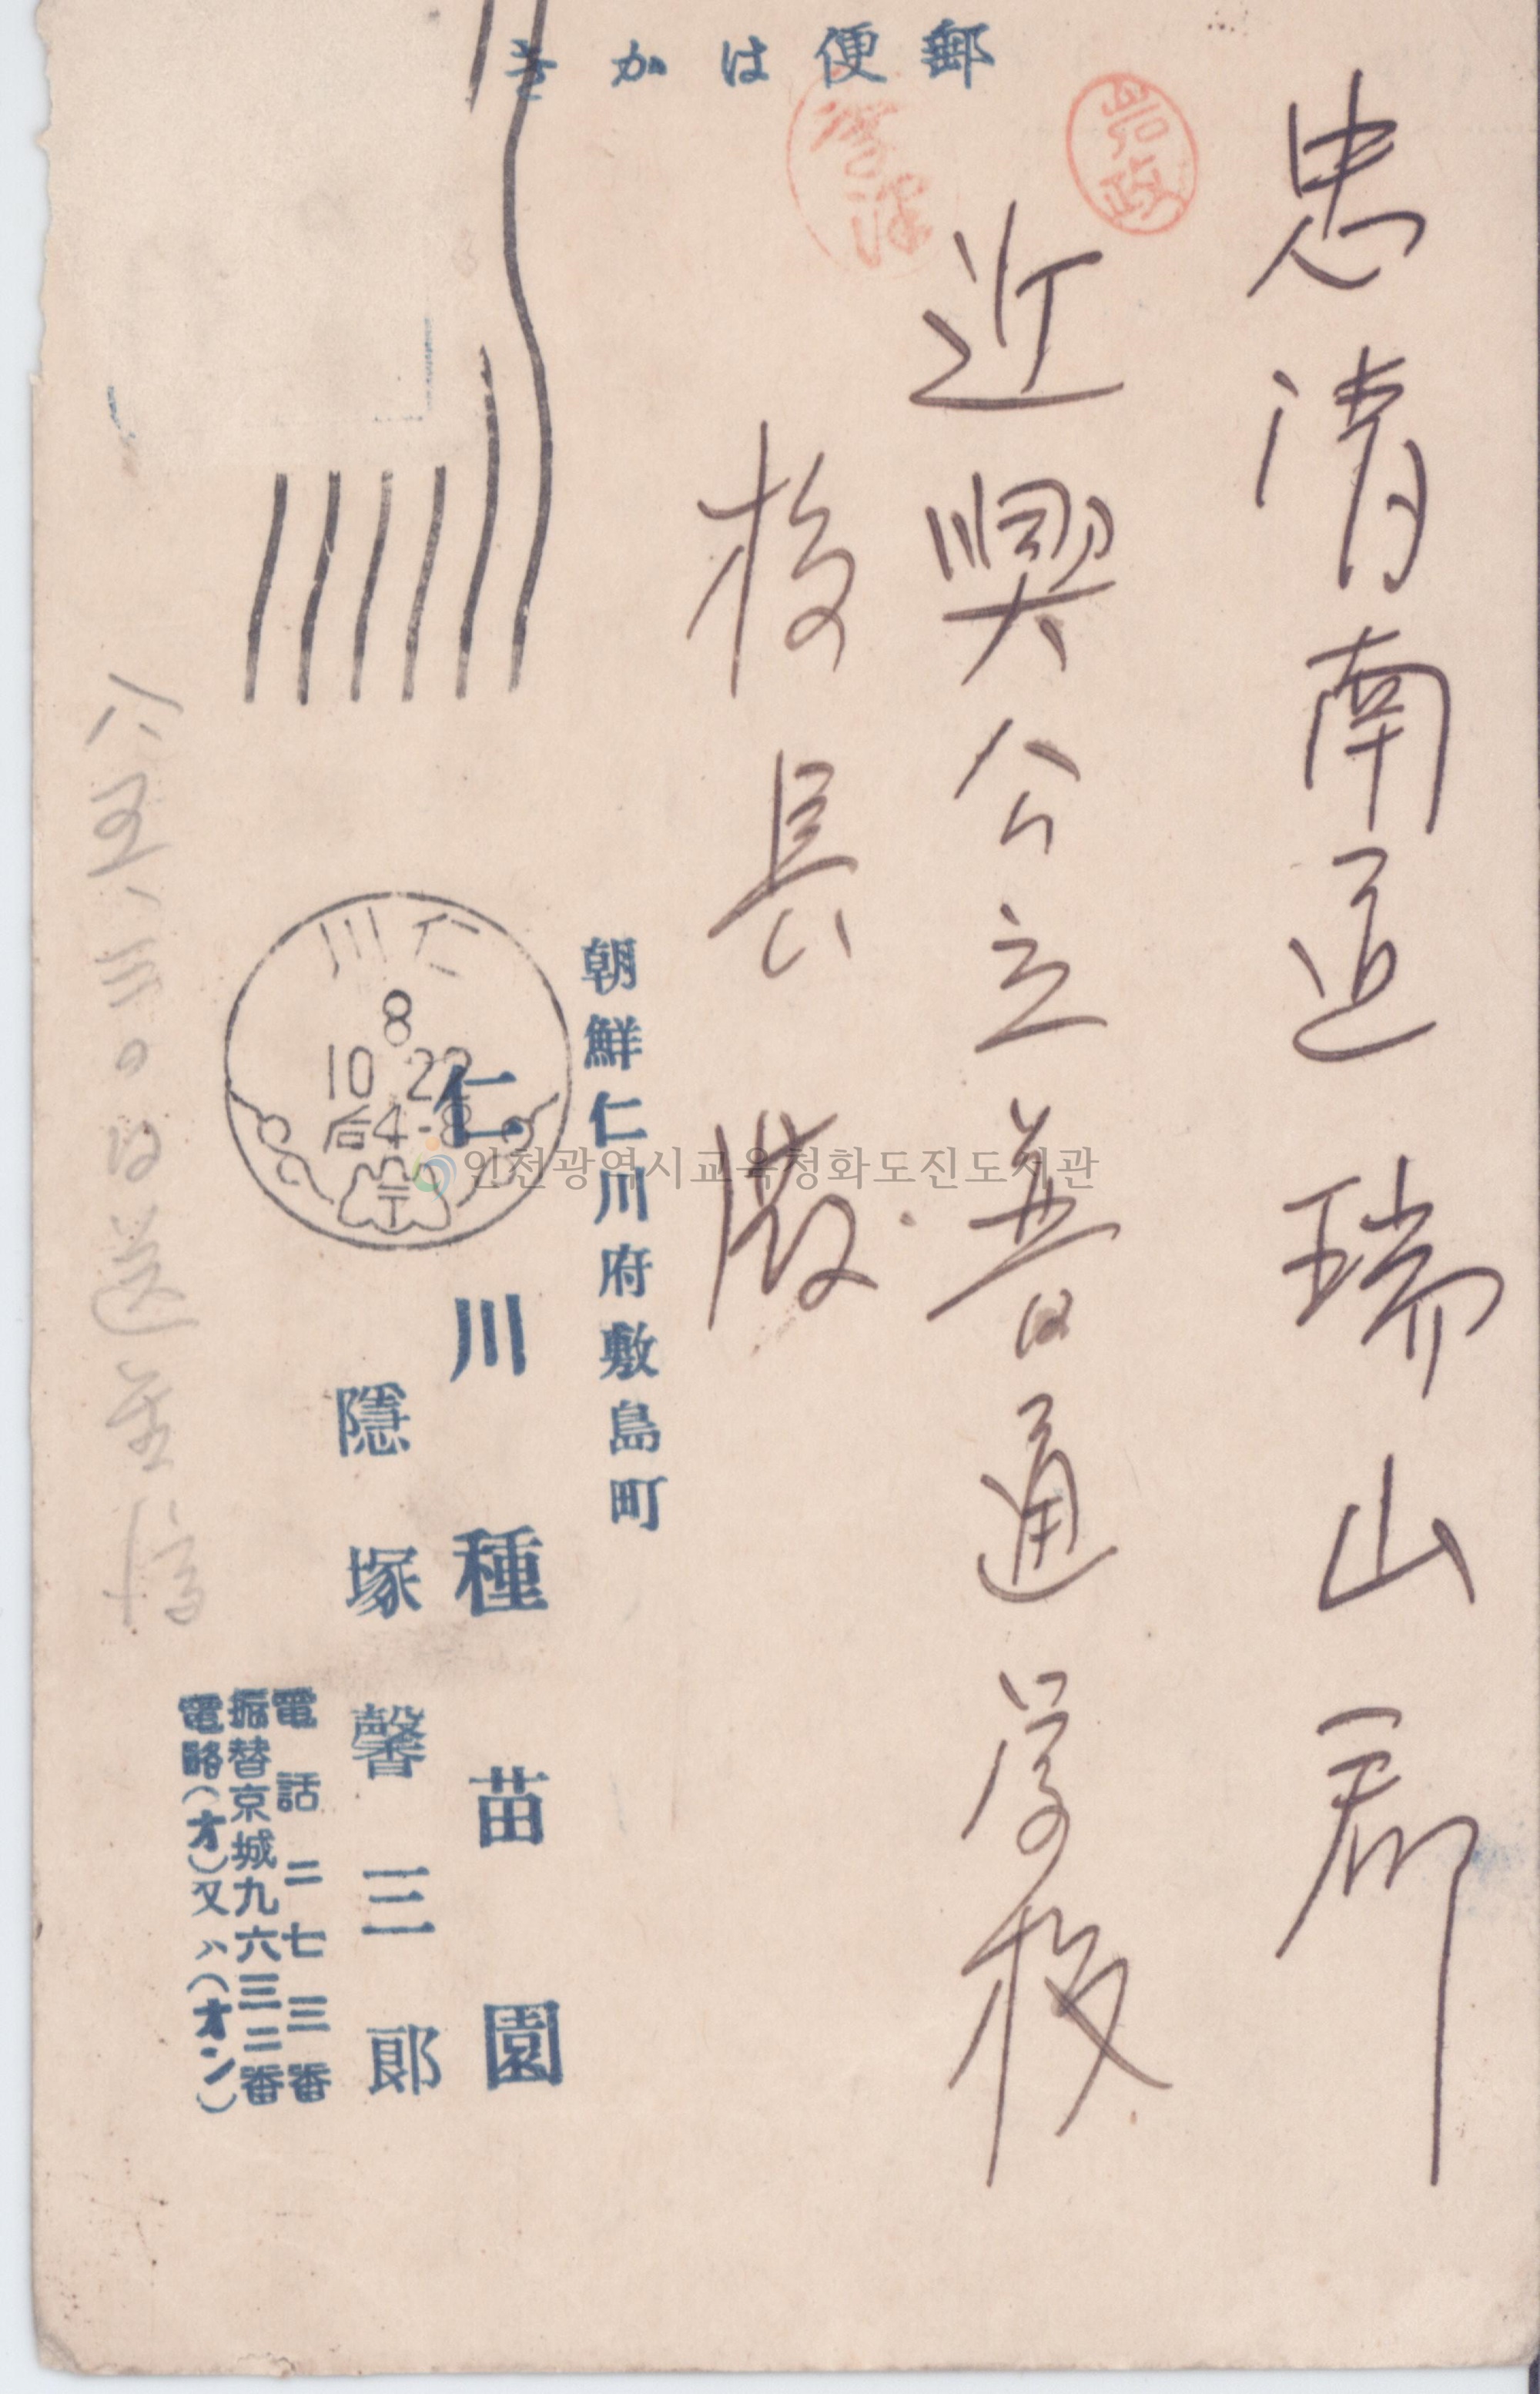 郵便はかき
忠清南道瑞山郡
近興公立普通学校
校長殿
朝鮮仁川府敷島町
仁川種苗園
隠塚馨三郎
電話二七三番
振替京城九六三二番
電略(オ)又ハ(オン)
仁川
8
10 22
后4-8
인천광역시교육청화도진도서관